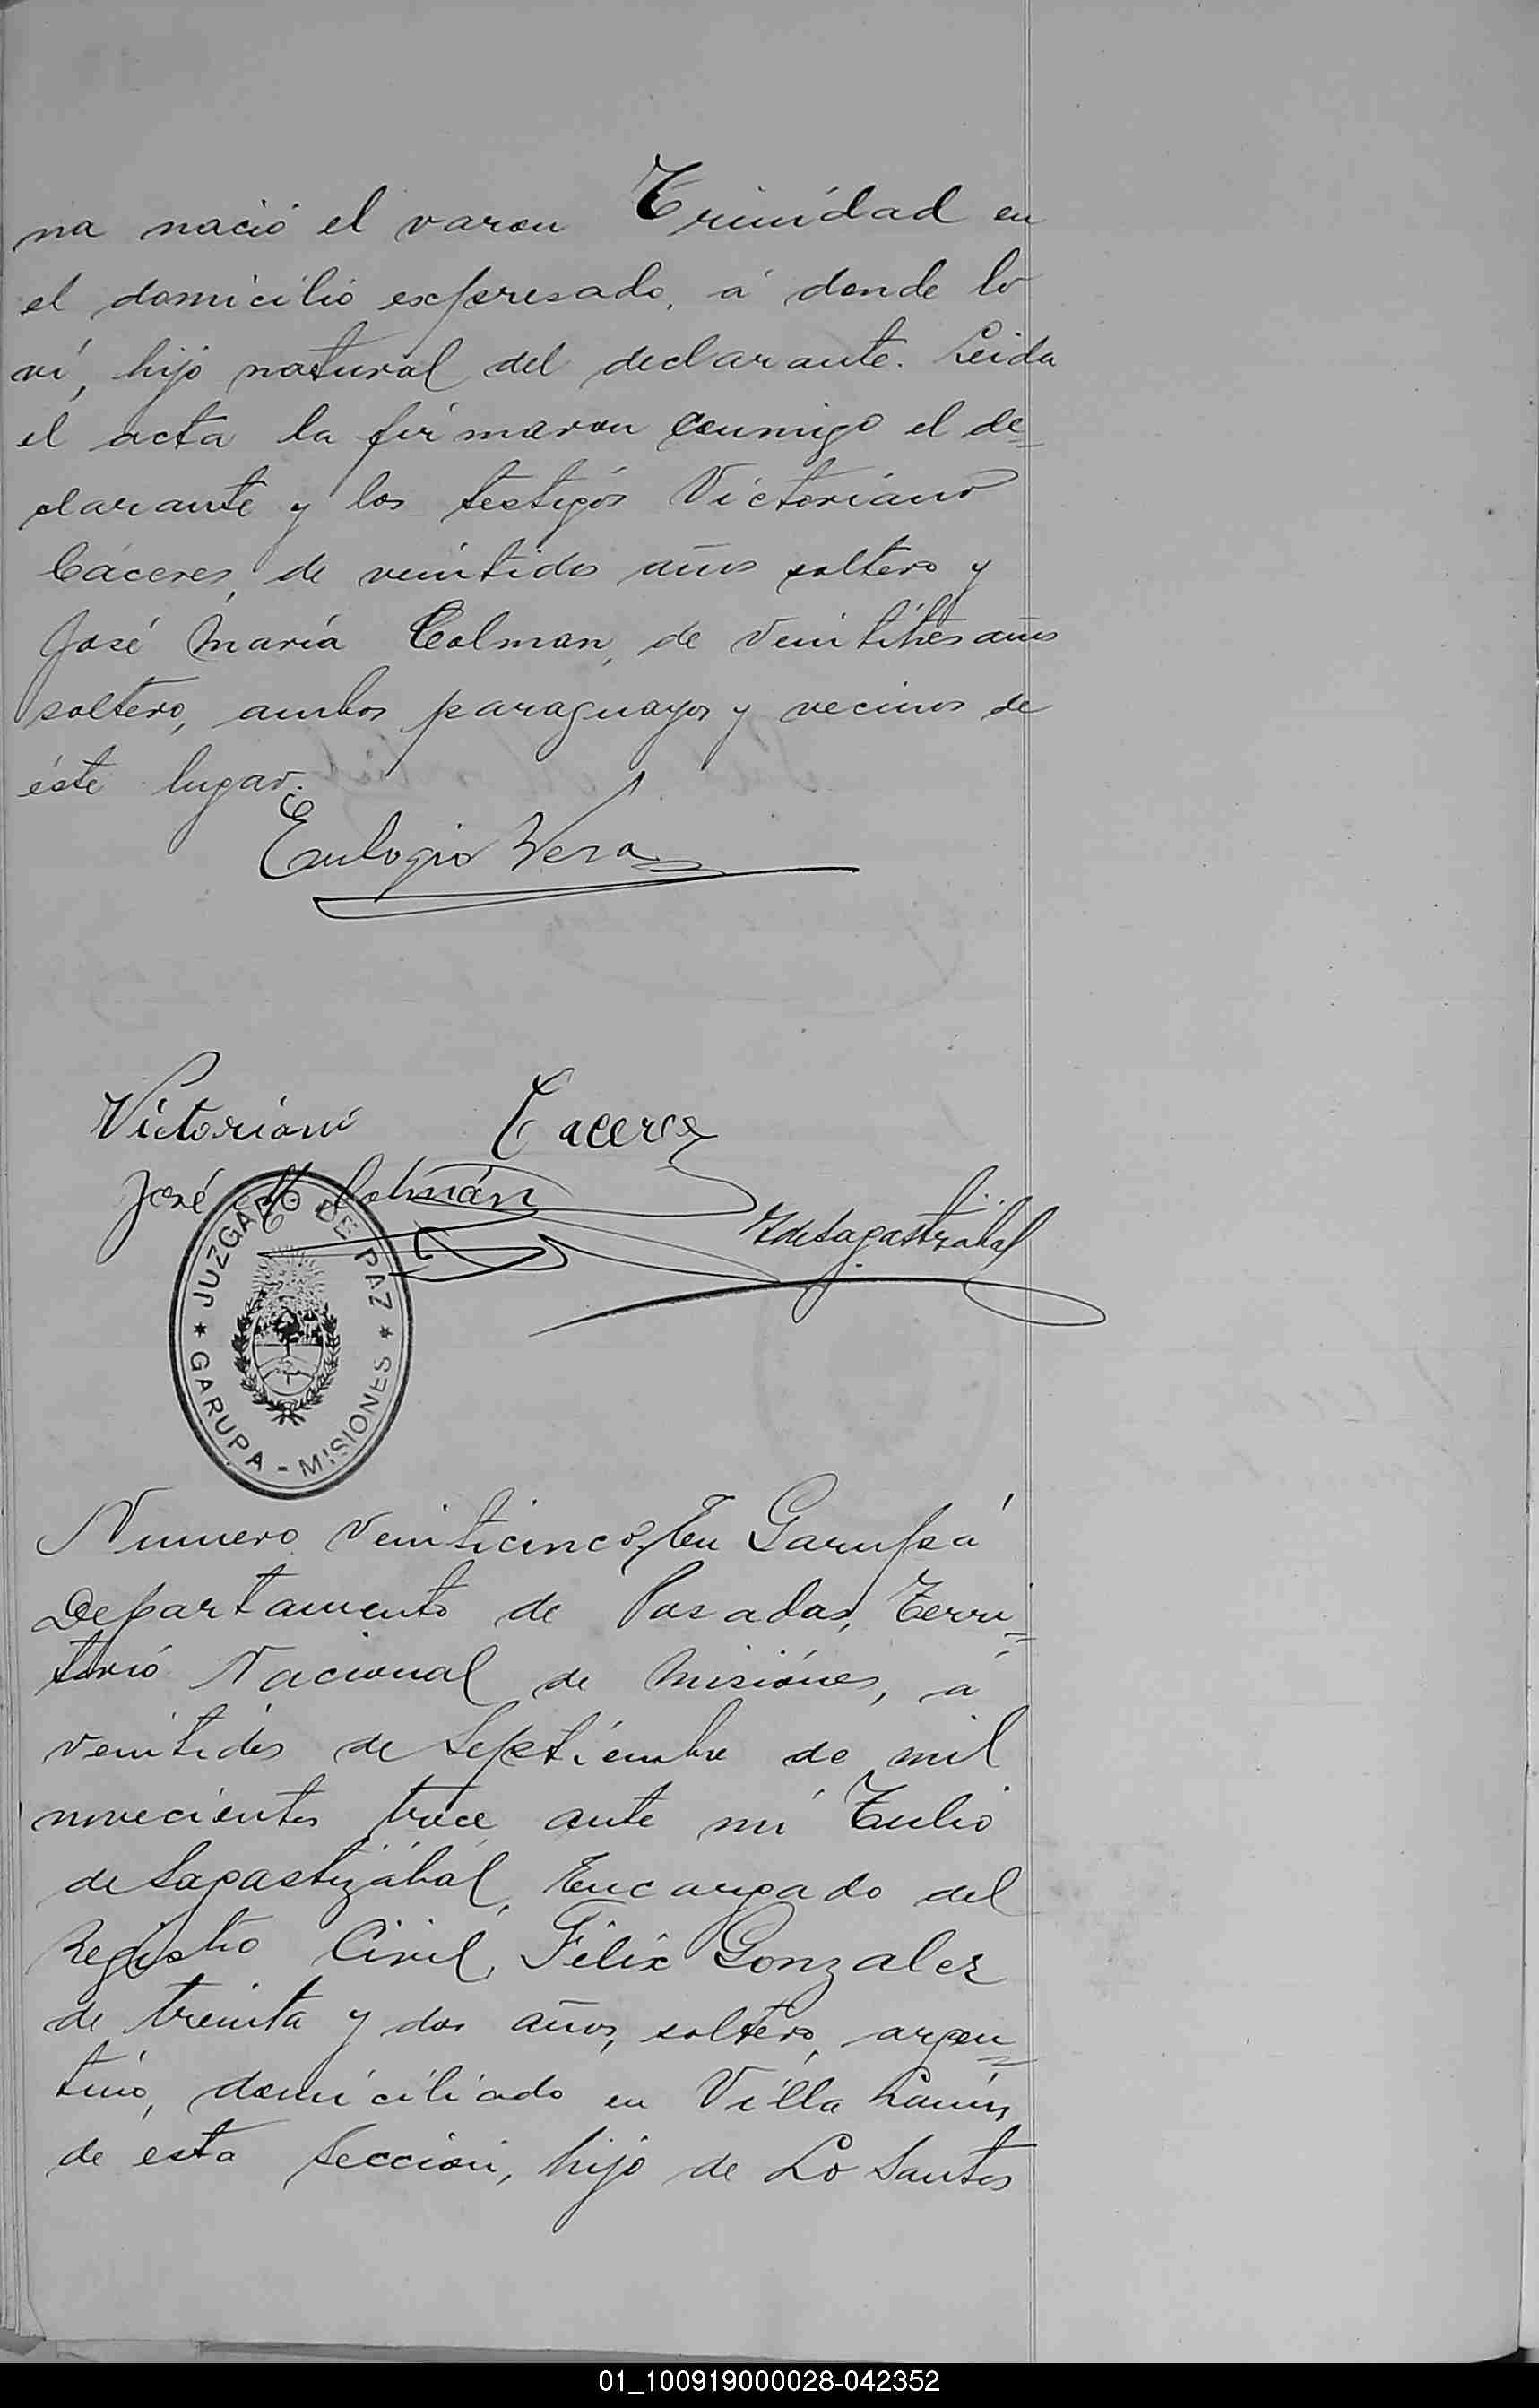 na nació el varon Trinidad en
el domicilio expresado, á donde lo
ví, hijo natural del declarante. Leida
el acta la firmaron conmigo el de=
clarante y los testigós Victoriano
Cáceres, de veintidos años soltero y
José María Colman, de veintitres años
soltero, ambos paraguayos y vecinos de
éste lugar.
Eulogio Vera
Victoriano Caceres
José M Colmán
TdeSagastizabal
JUZGADO DE PAZ
GARUPA - MISIONES
Numero veinticinco. En Garupá
Departamento de Posadas, Terri=
torio Nacional de Misiónes, á
veintidós de Septiembre de mil
novecientos trece ante mí Tulio
de Sagastizábal, Encargado del
Registro Civil, Félix Gonzalez
de treinta y dos años, soltero, argen=
tino, domiciliado en Villa Lanús
de esta Sección, hijo de Lo Santos
01_100919000028-042352